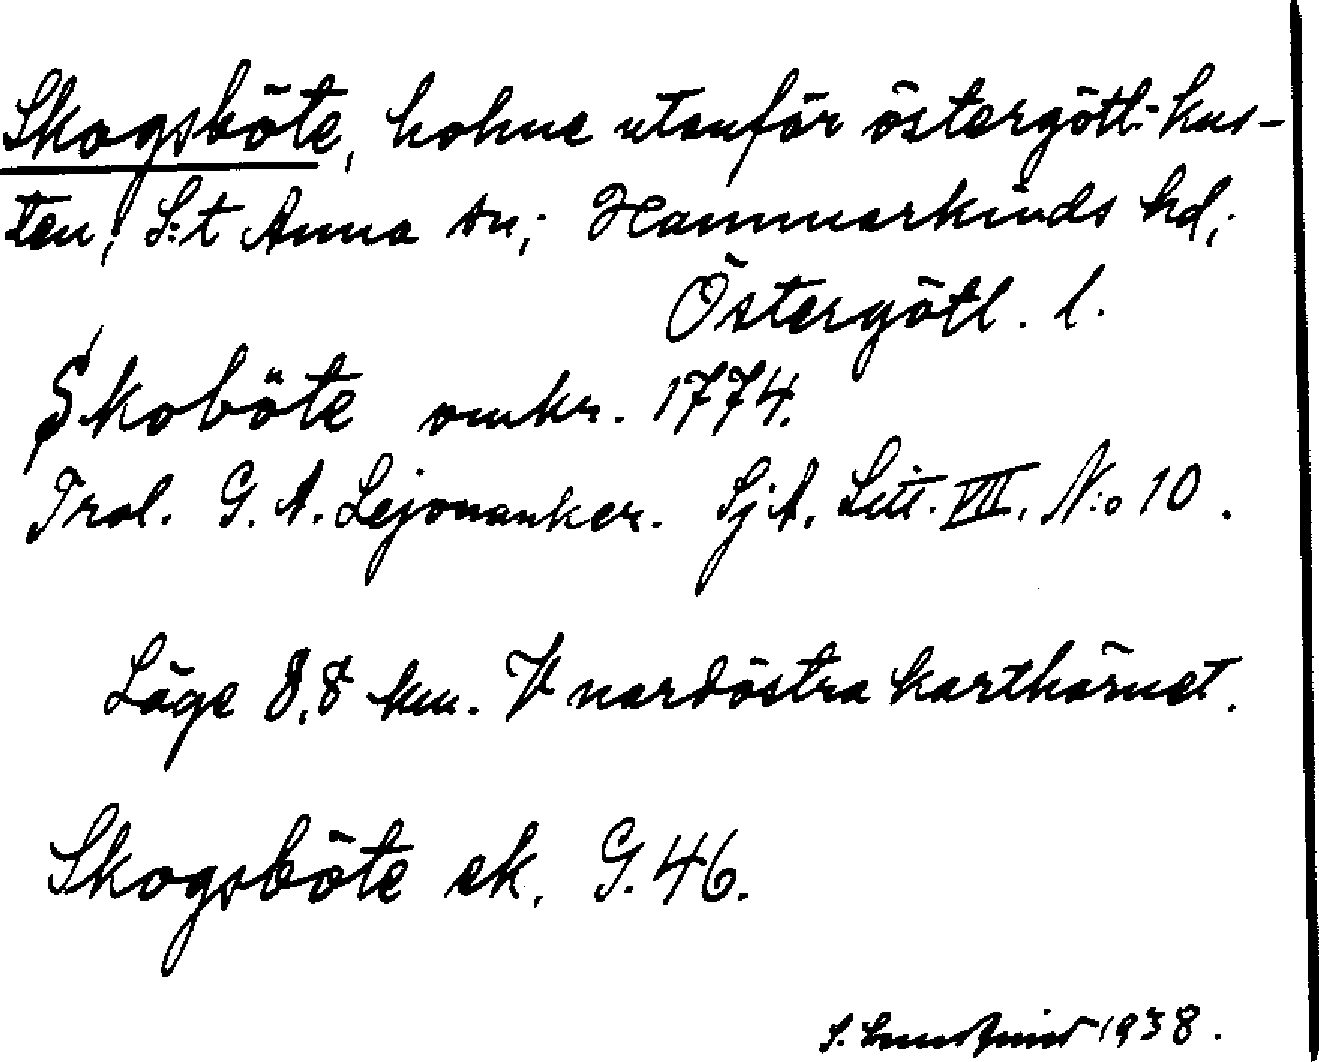 Skogsböte, holme utanför östergötl. kus-
ten, S:t Anna sn; Hammarkinds hd,
Östergötl. l.
Skoböte omkr. 1774.
Trol. G. A. Lejonanker. SjA, Litt. VII, N:o 10.
Läge 8,8 km. V nordöstra karthörnet.
Skogsböte ek. G. 46.
S. 1938.